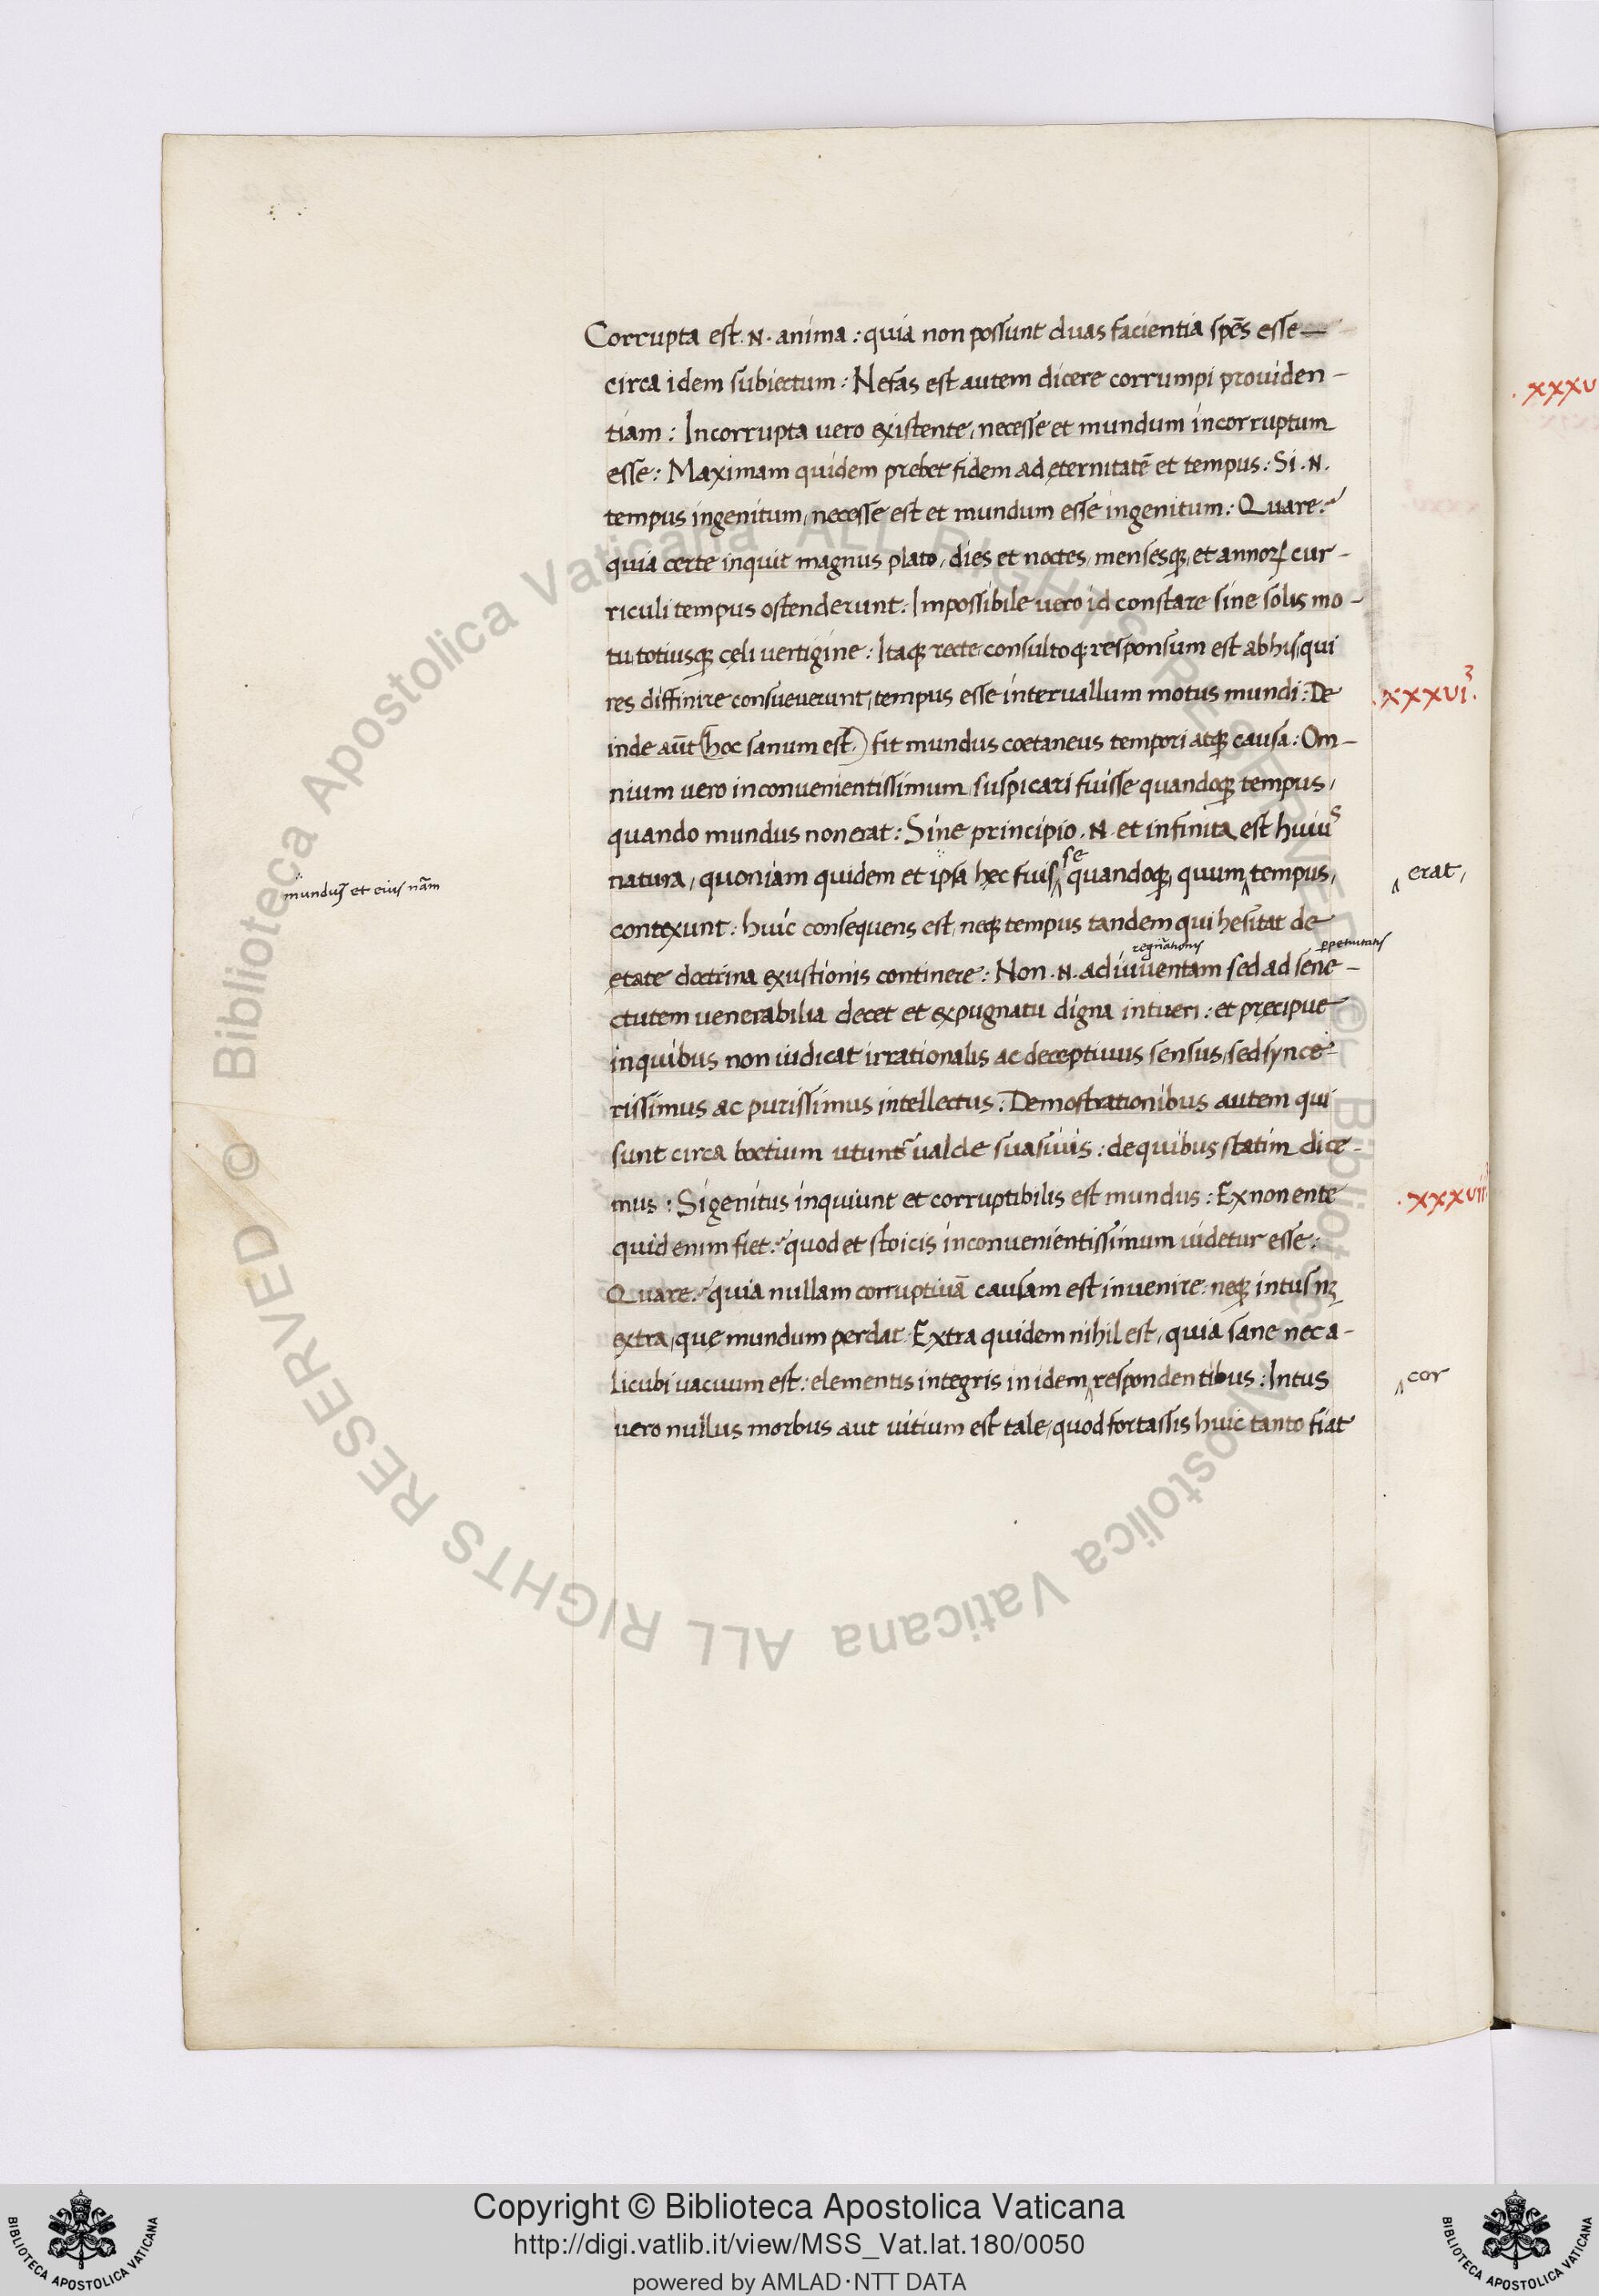 Corrupta est .N. anima : quia non possunt duas facientia spēs esse
circa idem subiectum : Nefas est autem dicere corrumpi prouiden-
tiam : Incorrupta vero existente, necesse et mundum incorruptum
esse : Maximam quidem prebet fidem ad ęternitatē et tempus : Si .N.
tempus ingenitum, necesse est et mundum esse ingenitum : Quare?
quia certe inquit magnus plato, dies et noctes, mensesqꝫ, et annoꝝ cur-
riculi tempus ostenderunt : Impossibile vero id constare sine solis mo-
tu, totiusqꝫ cęli vertigine : Itaqꝫ recte consultoqꝫ responsum est ab his, qui
res diffinire consueverunt, tempus esse intervallum motus mundi : De
.xxxvi.
inde aūt (hoc sanum est) fit mundus coetaneus tempori atqꝫ causa : Om-
nium vero inconvenientissimum suspicari fuisse quandoqꝫ tempus,
quando mundus non erat : Sine principio .N. et infinita est huius
natura, quoniam quidem et ipsa hęc fuisse quandoqꝫ, quum ʌ tempus,
ʌ erat,
mundus et eius nām
contexunt : huic consequens est, neqꝫ tempus tandem qui hesitat de
regn̄ationis
ętate doctrina exustionis continere : Non .N. ad iuventam sed ad sene-
ctutem venerabilia decet et expugnatu digna intueri : et pręcipue
in quibus non iudicat irrationalis ac deceptivus sensus, sed synce-
rissimus ac purissimus intellectus : Demostrationibus autem qui
sunt circa boetium utunt̄ valde suasivis : de quibus statim dice-
mus : Si genitus inquiunt et corruptibilis est mundus : Ex non ente
.xxxvii.
quid enim fiet? quod et stoicis inconvenientissimum videtur esse :
Quare? quia nullam corruptivā causam est invenire : neqꝫ intus nꝫ
extra, quę mundum perdat : Extra quidem nihil est, quia sane nec a-
licubi vacuum est : elementis integris in idem ʌ respondentibus : Intus
ʌ cor
vero nullus morbus aut vitium est tale, quod fortassis huic tanto fiat
.xxxv
Biblioteca Apostolica Vaticana ALL RIGHTS RESERVED ©
Biblioteca Apostolica Vaticana ALL RIGHTS RESERVED ©
Copyright © Biblioteca Apostolica Vaticana
http://digi.vatlib.it/view/MSS_Vat.lat.180/0050
powered by AMLAD·NTT DATA
BIBLIOTECA APOSTOLICA VATICANA
BIBLIOTECA APOSTOLICA VATICANA